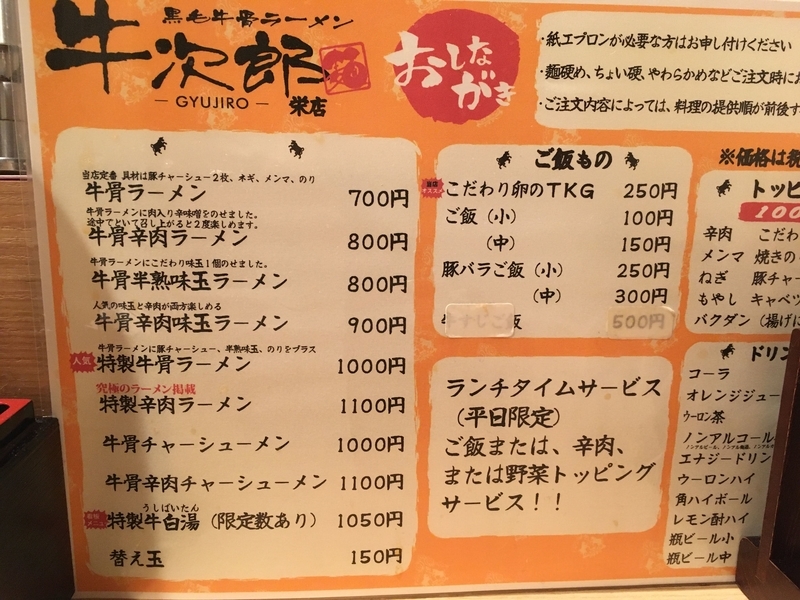 黒毛牛骨ラーメン
牛次郎
— GYUJIRO —
栄店
おしながき
・紙エプロンが必要な方はお申し付けください
・麺硬め、ちょい硬、やわらかめなどご注文時に
・ご注文内容によっては、料理の提供順が前後す
※価格は税
当店定番 具材は豚チャーシュー2枚、ネギ、メンマ、のり
牛骨ラーメン 700円
牛骨ラーメンに肉入り辛味噌をのせました。
途中でといて召し上がると2度楽しめます。
牛骨辛肉ラーメン 800円
牛骨ラーメンにこだわり味玉1個のせました。
牛骨半熟味玉ラーメン 800円
人気の味玉と辛肉が両方楽しめる
牛骨辛肉味玉ラーメン 900円
牛骨ラーメンに豚チャーシュー、半熟味玉、のりをプラス
人気 特製牛骨ラーメン 1000円
究極のラーメン掲載
特製辛肉ラーメン 1100円
牛骨チャーシューメン 1000円
牛骨辛肉チャーシューメン 1100円
うしぱいたん
特製牛白湯（限定数あり） 1050円
替え玉 150円
ご飯もの
当店オススメ こだわり卵のTKG 250円
ご飯（小） 100円
（中） 150円
豚バラご飯（小） 250円
（中） 300円
牛すじご飯 500円
ランチタイムサービス
（平日限定）
ご飯または、辛肉、
または野菜トッピング
サービス！！
トッピ
100
辛肉 こだわ
メンマ 焼きの
ねぎ 豚チャー
もやし キャベツ
バクダン（揚げに
ドリン
コーラ
オレンジジュー
ウーロン茶
ノンアルコール
エナジードリン
ウーロンハイ
角ハイボール
レモン酎ハイ
瓶ビール小
瓶ビール中